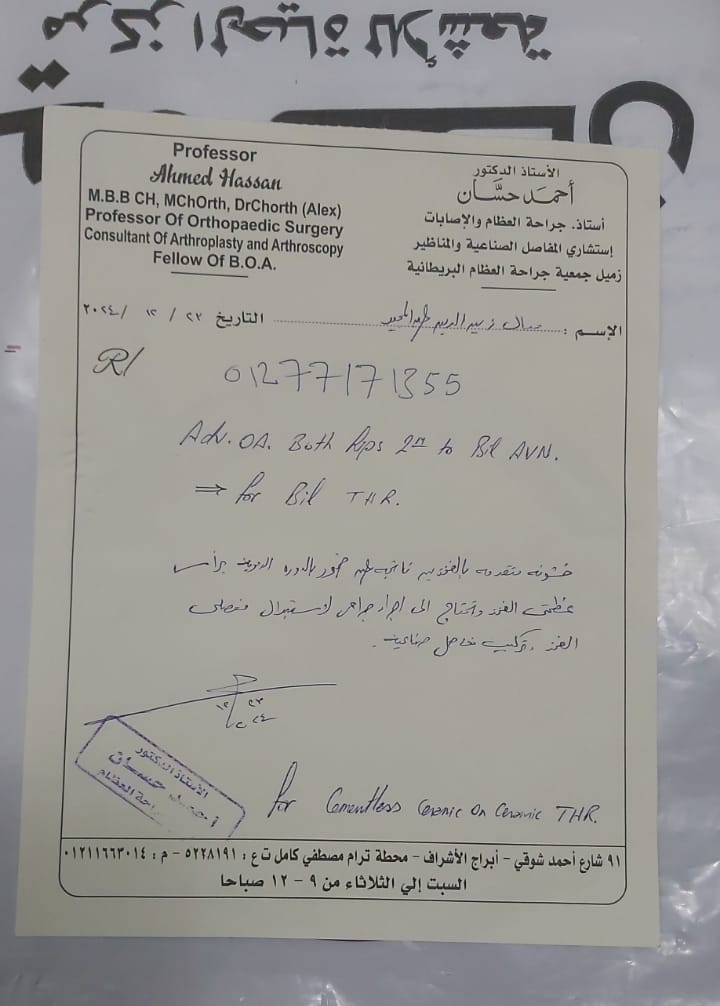 مركز الحياة للأشعة
Professor
Ahmed Hassan
M.B.B CH, MChOrth, DrChorth (Alex)
Professor Of Orthopaedic Surgery
Consultant Of Arthroplasty and Arthroscopy
Fellow Of B.O.A.
الأستاذ الدكتور
أحمد حسَّان
أستاذ. جراحة العظام والإصابات
إستشاري المفاصل الصناعية والمناظير
زميل جمعية جراحة العظام البريطانية
الإسم :
التاريخ ٢٣ / ١٢ / ٢٠٢٤
R/
01277171355
Adv. OA. Both hips 2ry to Bil AVN.
⇒ for Bil THR.
خشونه متقدمه بالفخذين ناتجه عن بالدوره الدمويه برأس
عظمتى الفخذ وتحتاج الى اجراء جراحى لاستبدال مفصلى
الفخذ وتركيب مفاصل صناعية.
٢٣
١٢
٢٠٢٤
الأستاذ الدكتور
أحمد حسان
جراحة العظام
for Cementless Ceramic On Ceramic THR.
٩١ شارع أحمد شوقي - أبراج الأشراف - محطة ترام مصطفي كامل ت ع : ٥٢٢٨١٩١ - م : ٠١٢١١٦٦٣٠١٤
السبت إلي الثلاثاء من ٩ - ١٢ صباحا